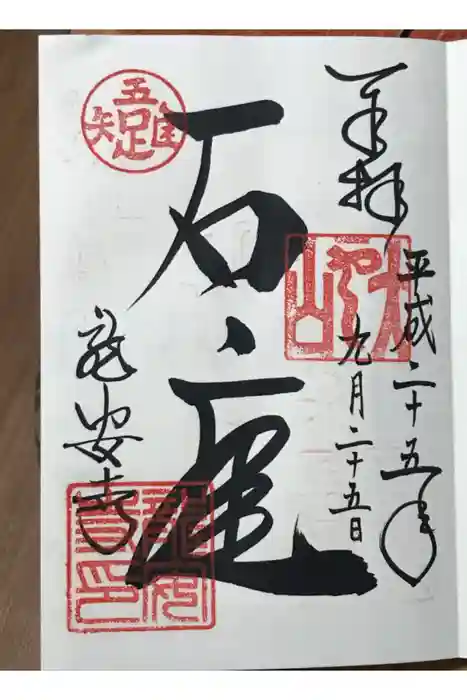 奉拝
平成二十五年
九月二十五日
大雲山
石庭
吾唯足知
龍安寺
龍安寺印